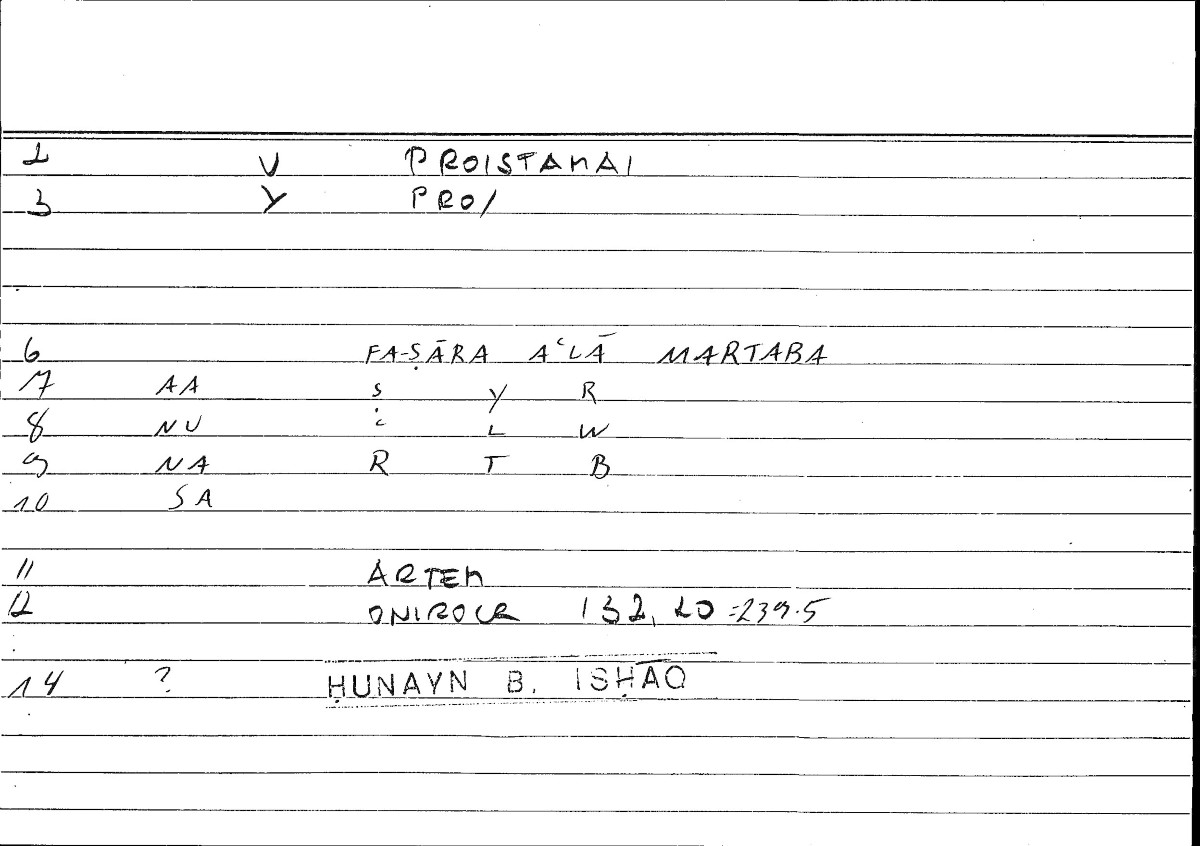 2 V PROISTAMAI
3 Y PRO/
6 FA-ṢĀRA AʿLĀ MARTABA
7 AA Ṣ Y R
8 NU ʿ L W
9 NA R T B
10 SA
11 ARTEM
12 ONIROCR 132, 20 =239.5
14 ? ḤUNAYN B. ISḤĀQ